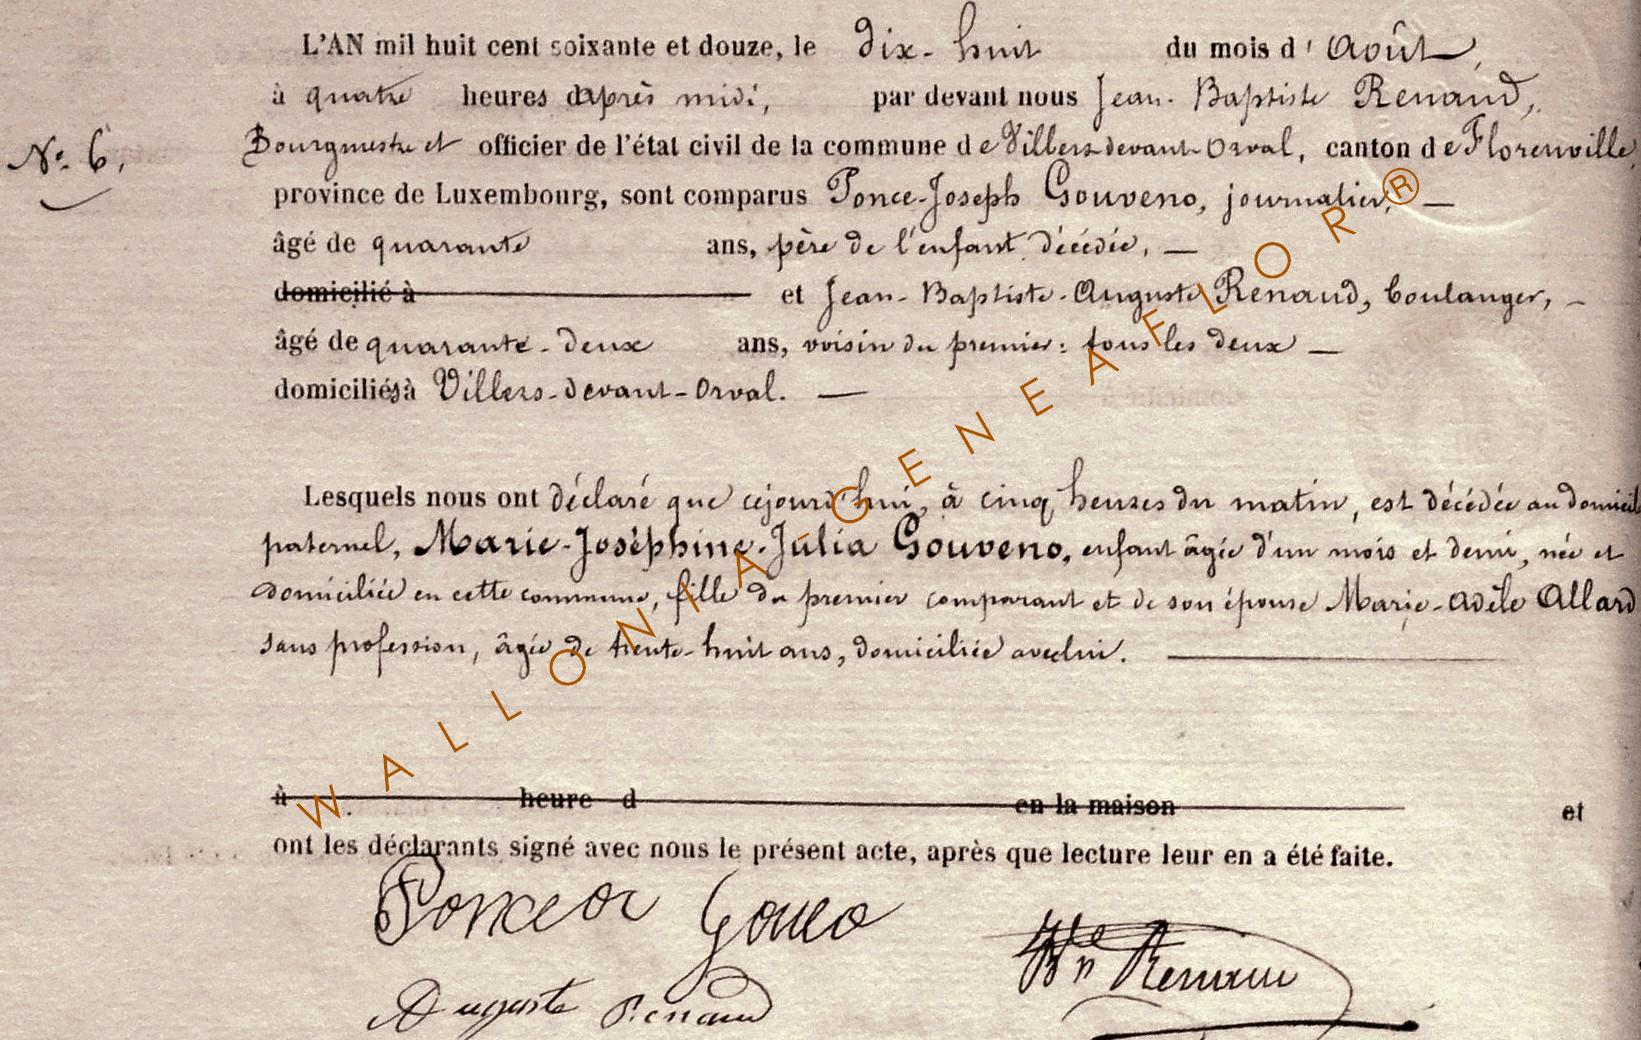 L'AN mil huit cent soixante et douze, le dix-huit du mois d' Août,
à quatre heures d'après midi, par devant nous Jean-Baptiste Renaud,
N° 6. Bourgmestre et officier de l'état civil de la commune de Villers-devant-Orval, canton de Florenville,
province de Luxembourg, sont comparus Ponce-Joseph Gouveno, journalier, —
âgé de quarante ans, père de l'enfant décédée, —
domicilié à et Jean-Baptiste-Auguste Renaud, boulanger, —
âgé de quarante-deux ans, voisin du premier : tous les deux —
domiciliés à Villers-devant-Orval. —
Lesquels nous ont déclaré que cejourd'hui, à cinq heures du matin, est décédée au domicile
paternel, Marie-Joséphine-Julia Gouveno, enfant âgée d'un mois et demi, née et
domiciliée en cette commune, fille du premier comparant et de son épouse Marie-Adèle Allard
sans profession, âgée de trente-huit ans, domiciliée avec lui. —
à heure d en la maison et
ont les déclarants signé avec nous le présent acte, après que lecture leur en a été faite.
Auguste Renaud
Renaud
WALLONIA GENEAFLOR®